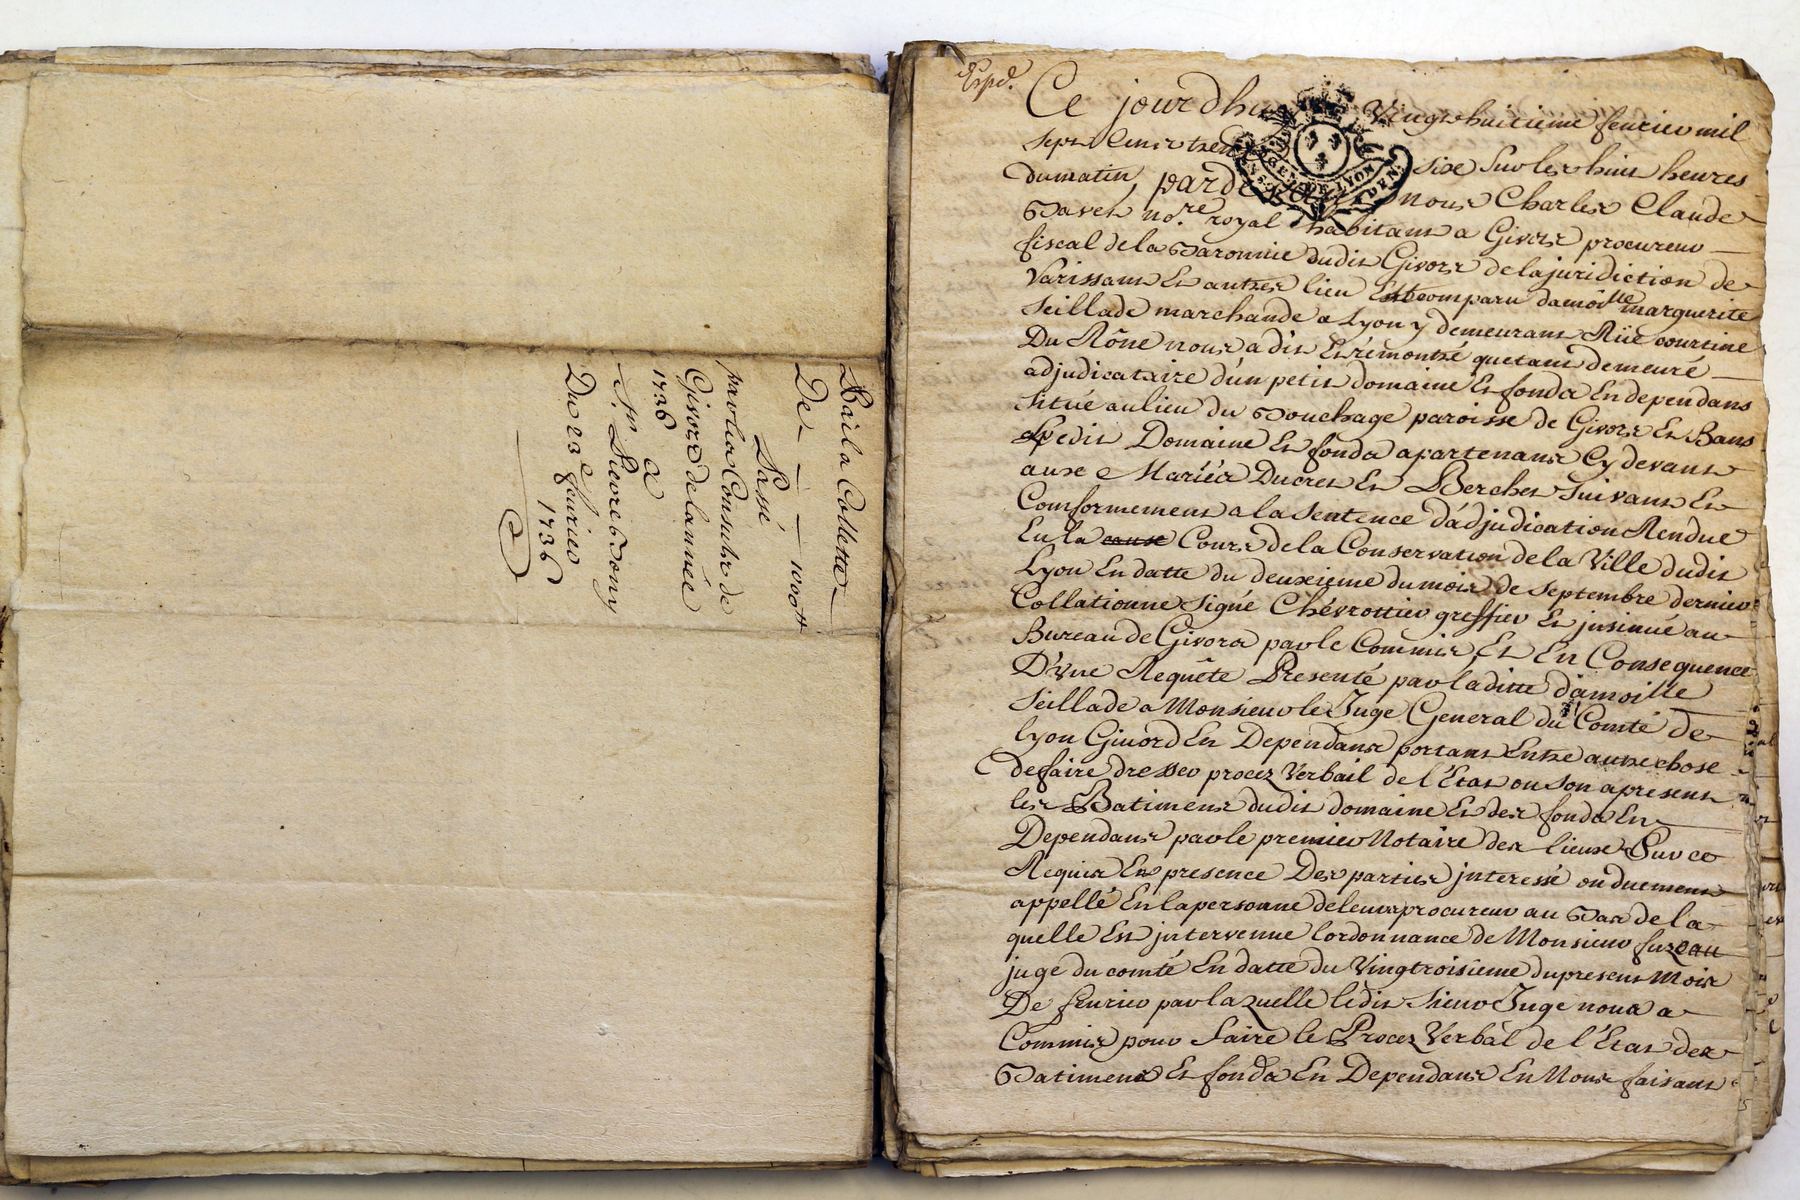 Bail a Collette
De — — — 1000ᵗᵗ
Passé
par les Consuls de
Givors de lannée
1736
a
Sʳ Pierre Dony
Du 23ᵉ feurier
1736
Expd.
Ce jourdhuy Vingt huitieme feurier mil
sept Cent trente six Sur les huit heures
du matin, pardevant nous Charles Claude
Bavet noʳᵉ royal habitant a Givors procureur
fiscal de la Baronnie dudit Givors de la juridiction de
Varissant Et autres lieu Est comparu damoiˡˡᵉ marguerite
Seillade marchande a Lyon y demeurant Rüe courtine
Du Rône nous a dit Et rémontré quetant demeuré
adjudicataire d'un petit domaine Et fonds En dependans
situé au lieu du Bouchage paroisse de Givors Et Bans
Ledit Domaine Et fonds apartenans Cy devant
aux Mariés Ducret Et Berchet Suivant Et
Conformement a la sentence d'adjudication Rendue
En la cause Cours de la Conservation de la Ville dudit
Lyon En datte du deuxieme du mois de septembre dernier
Collationne Signé Chévrottier greffier Et jnsinué au
Bureau de Givors par le Commis, Et En Consequence
D'vne Requête Presenté par laditte damoille
Seillade a Monsieur le Juge General du Comté de
Lyon Givord En Dependans portant Entre autre chose
de faire dresser procez Verbail de l'Etat ou son apresent
les Batimens dudit domaine Et des fonds En
Dependans par le premier Notaire des lieux Sur ce
Requis En presence Des parties jnteressé ou duement
appellé En la personne de leurs procureur au Bas de la
quelle Est jntervenue lordonnance de Monsieur fuzeau
juge du comté En datte du Vingtroisieme du present Mois
De feurier par la quelle ledit Sieur Juge nous a
Commis pour faire le Procez Verbal de l'Etat des
Batimens Et fonds En Dependans En Nous faisant
GEN. DE LYON